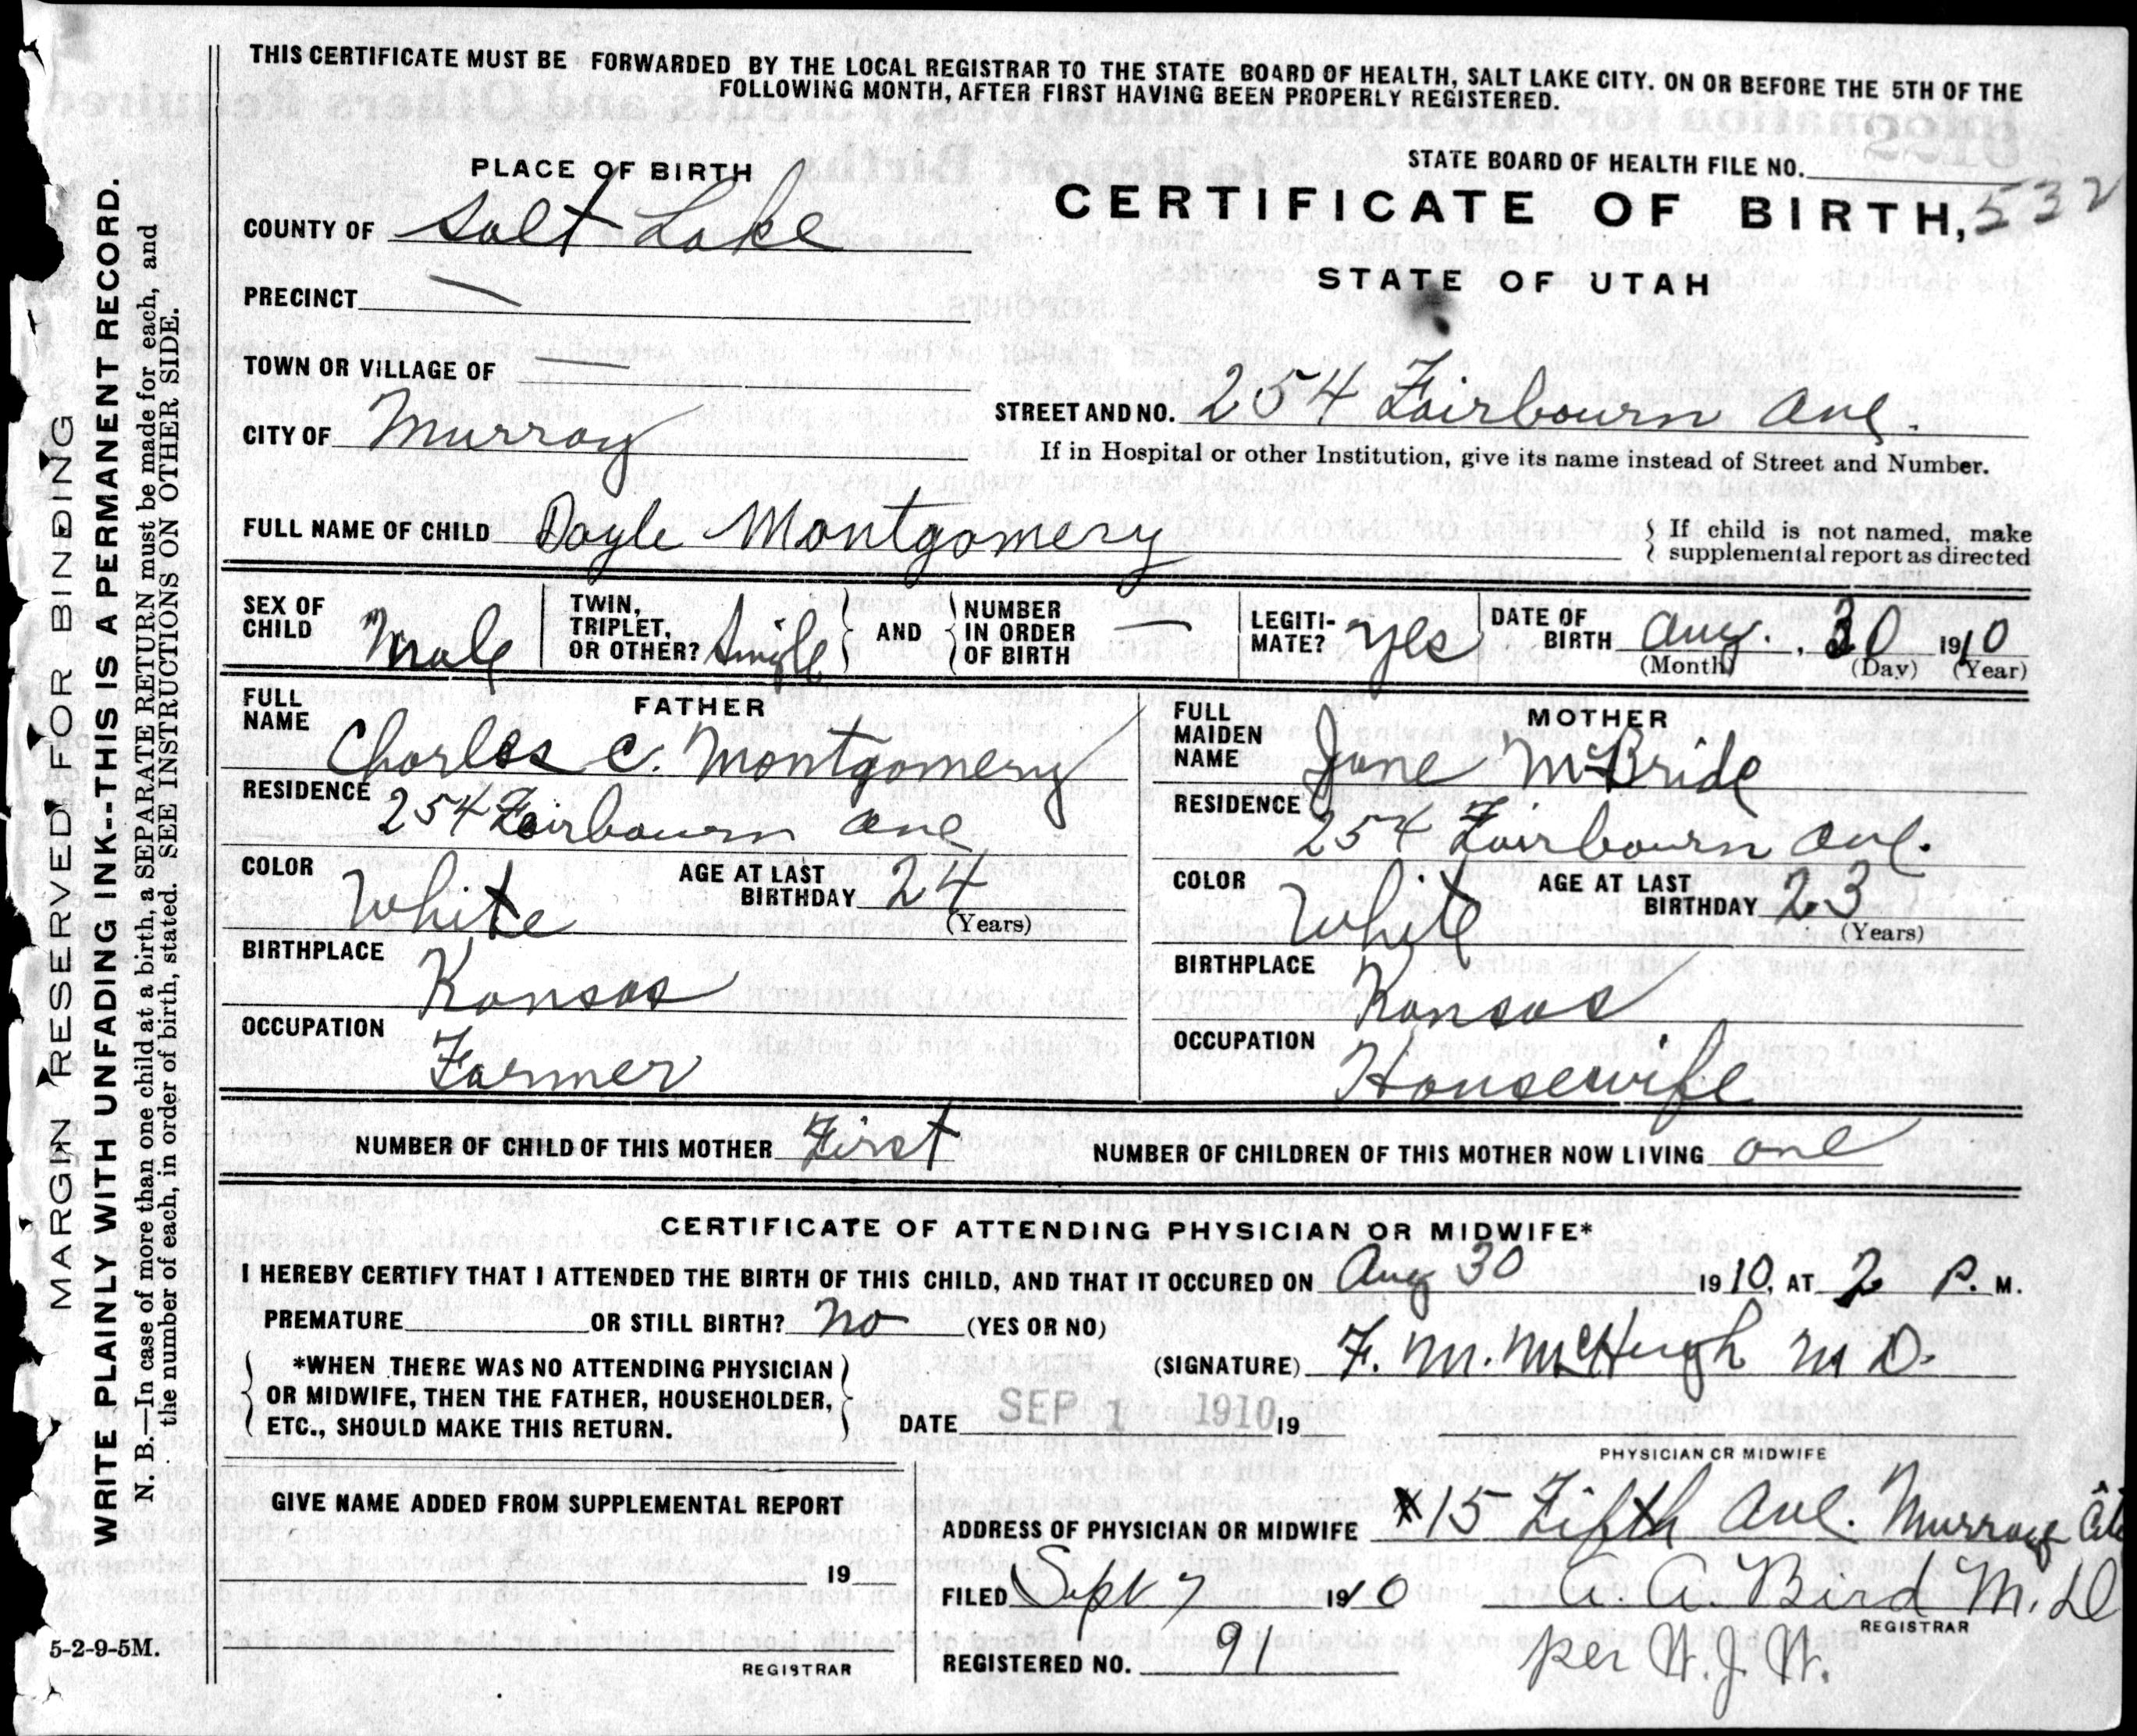 THIS CERTIFICATE MUST BE FORWARDED BY THE LOCAL REGISTRAR TO THE STATE BOARD OF HEALTH, SALT LAKE CITY. ON OR BEFORE THE 5TH OF THE
FOLLOWING MONTH, AFTER FIRST HAVING BEEN PROPERLY REGISTERED.
PLACE OF BIRTH
STATE BOARD OF HEALTH FILE NO.
CERTIFICATE OF BIRTH, 532
COUNTY OF Salt Lake
STATE OF UTAH
PRECINCT —
TOWN OR VILLAGE OF —
STREET AND NO. 254 Fairbourn Ave.
CITY OF Murray
If in Hospital or other Institution, give its name instead of Street and Number.
FULL NAME OF CHILD Doyle Montgomery
{ If child is not named, make
supplemental report as directed
SEX OF CHILD Male
TWIN, TRIPLET, OR OTHER? Single } AND { NUMBER IN ORDER OF BIRTH —
LEGITI-MATE? yes
DATE OF BIRTH Aug. 30 1910
(Month) (Day) (Year)
FATHER
FULL NAME Charles C. Montgomery
RESIDENCE 254 Fairbourn Ave
COLOR White AGE AT LAST BIRTHDAY 24
(Years)
BIRTHPLACE Kansas
OCCUPATION Farmer
MOTHER
FULL MAIDEN NAME Jane McBride
RESIDENCE 254 Fairbourn Ave.
COLOR White AGE AT LAST BIRTHDAY 23
(Years)
BIRTHPLACE Kansas
OCCUPATION Housewife
NUMBER OF CHILD OF THIS MOTHER First NUMBER OF CHILDREN OF THIS MOTHER NOW LIVING one
CERTIFICATE OF ATTENDING PHYSICIAN OR MIDWIFE*
I HEREBY CERTIFY THAT I ATTENDED THE BIRTH OF THIS CHILD, AND THAT IT OCCURED ON Aug 30 1910, AT 2 P. M.
PREMATURE OR STILL BIRTH? no (YES OR NO)
(SIGNATURE) F. M. McHugh M D.
{ *WHEN THERE WAS NO ATTENDING PHYSICIAN }
{ OR MIDWIFE, THEN THE FATHER, HOUSEHOLDER, }
{ ETC., SHOULD MAKE THIS RETURN. }
DATE SEP 1 1910 19
PHYSICIAN OR MIDWIFE
GIVE NAME ADDED FROM SUPPLEMENTAL REPORT
19
REGISTRAR
ADDRESS OF PHYSICIAN OR MIDWIFE #15 Fifth Ave. Murray
FILED Sept 7 1910 A. A. Bird M. D
REGISTRAR
REGISTERED NO. 91 per W. J. W.
5-2-9-5M.
MARGIN RESERVED FOR BINDING
WRITE PLAINLY WITH UNFADING INK--THIS IS A PERMANENT RECORD.
N. B.—In case of more than one child at a birth, a SEPARATE RETURN must be made for each, and
the number of each, in order of birth, stated. SEE INSTRUCTIONS ON OTHER SIDE.